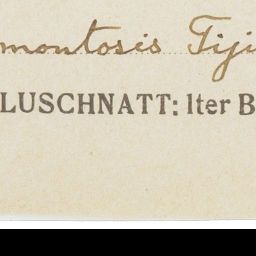 montosis Fiji
LUSCHNATT: Iter B